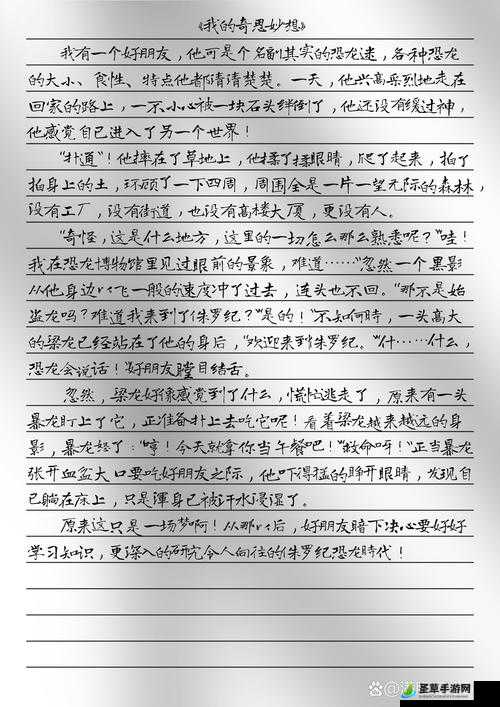 《我的奇思妙想》
我有一个好朋友，他可是个名副其实的恐龙迷，各种恐龙
的大小、食性、特点他都清清楚楚。一天，他兴高采烈地走在
回家的路上，一不小心被一块石头绊倒了，他还没有缓过神，
他感觉自己进入了另一个世界！
“扑通”！他摔在了草地上，他揉了揉眼睛，爬了起来，拍了
拍身上的土，环顾了一下四周，周围全是一片一望无际的森林，
没有工厂，没有街道，也没有高楼大厦，更没有人。
“奇怪，这是什么地方，这里的一切怎么那么熟悉呢？”哇！
我在恐龙博物馆里见过眼前的景象，难道……“忽然一个黑影
从他身边以飞一般的速度冲了过去，连头也不回。“那不是始
盗龙吗？难道我来到了侏罗纪？”是的！”不知何時，一头高大
的梁龙已经站在了他的身后，“欢迎来到侏罗纪。”什……什么，
恐龙会说话！”好朋友瞠目结舌。
忽然，梁龙好像感觉到了什么，慌忙逃走了，原来有一头
暴龙盯上了它，正准备扑上去吃它呢！看着梁龙越来越远的身
影，暴龙怒了：“哼！今天就拿你当午餐吧！”“救命呀！”正当暴龙
张开血盆大口要吃好朋友之际，他吓得猛的睁开眼睛，发现自
己躺在床上，只是渾身已被汗水浸湿了。
原来这只是一场梦啊！从那以后，好朋友暗下决心要好好
学习知识，更深入的研究令人向往的侏罗纪恐龙時代！
圣草手游网